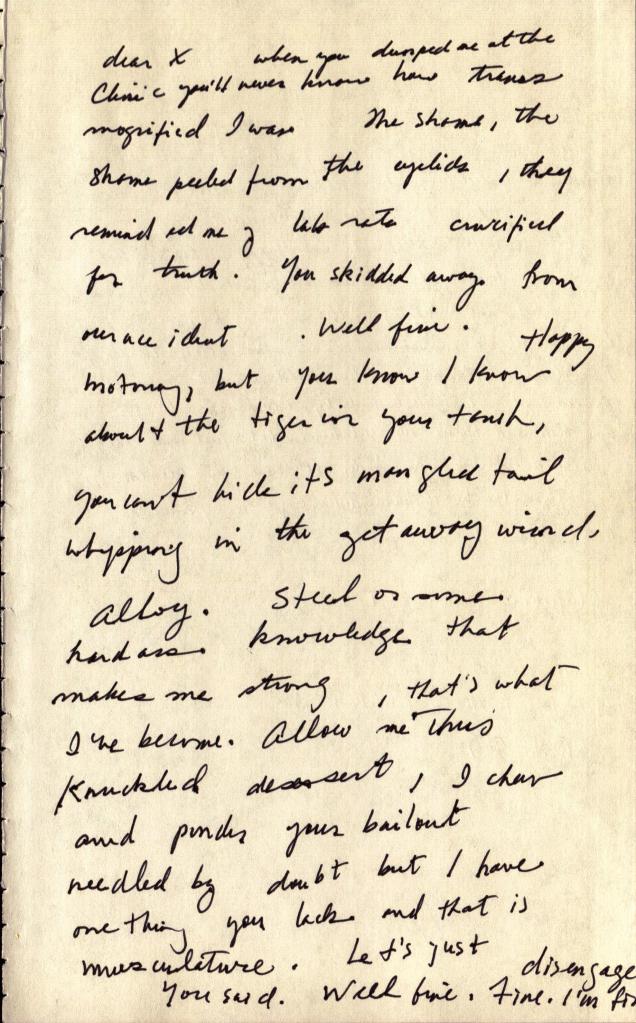 dear X when you dumped me at the
Clinic you'll never know how trans
mogrified I was The shame, the
shame peeled from the eyelids , they
remind ed me of lab rats crucified
for truth. You skidded away from
our accident . Well fine. Happy
motoring, but you know I know
about the tiger in your tank,
you can't hide its mangled tail
whipping in the getaway wind,
Alloy. Steel or some
hardass knowledge that
makes me strong , that's what
I've become. Allow me this
Knuckled dessert, I chew
and ponder your bailout
needled by doubt but I have
one thing you lack and that is
musculature. Let's just disengage
You said. Well fine. Fine. I'm